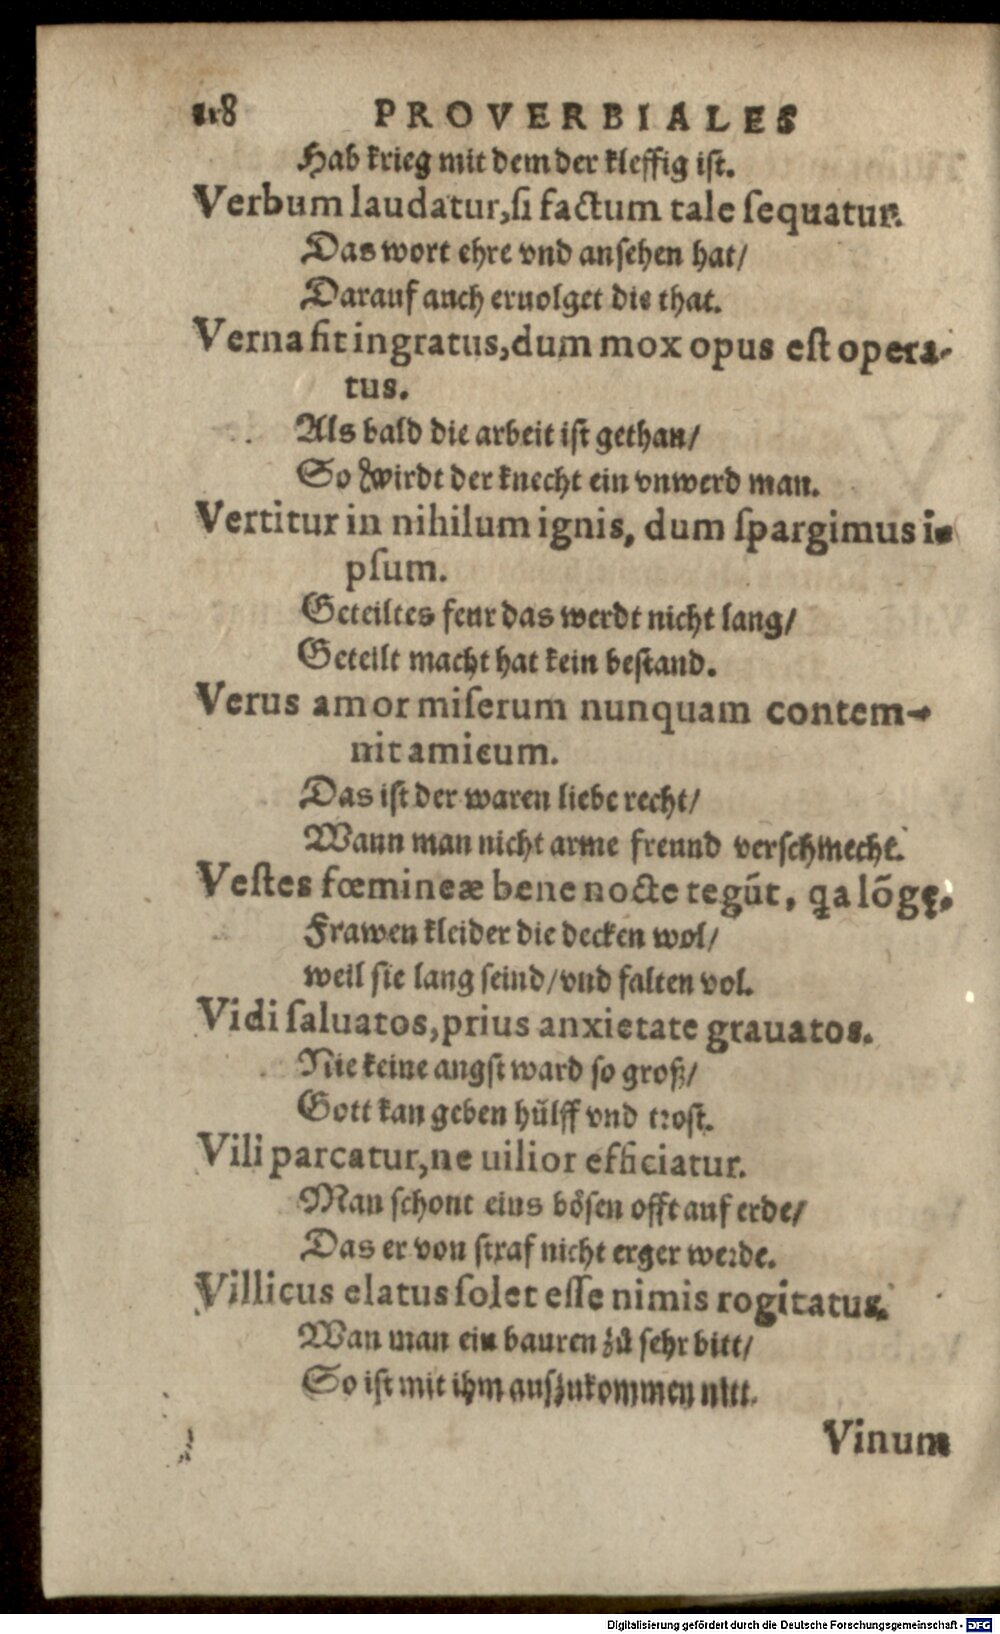 118 PROVERBIALES
Hab krieg mit dem der kleffig ist.
Verbum laudatur, si factum tale sequatur.
Das wort ehre vnd ansehen hat/
Darauf auch eruolget die that.
Verna fit ingratus, dum mox opus est opera-
tus.
Als bald die arbeit ist gethan/
So wirdt der knecht ein vnwerd man.
Vertitur in nihilum ignis, dum spargimus i-
psum.
Geteiltes feur das werdt nicht lang/
Geteilt macht hat kein bestand.
Verus amor miserum nunquam contem-
nit amicum.
Das ist der waren liebe recht/
Wann man nicht arme freund verschmecht.
Vestes fœmineæ bene nocte tegūt, qa lōgę.
Frawen kleider die decken wol/
weil sie lang seind/vnd falten vol.
Vidi saluatos, prius anxietate grauatos.
Nie keine angst ward so groß/
Gott kan geben hülff vnd trost.
Vili parcatur, ne uilior efficiatur.
Man schont eins bösen offt auf erde/
Das er von straf nicht erger werde.
Villicus elatus solet esse nimis rogitatus.
Wan man ein bauren zů sehr bitt/
So ist mit ihm auszukommen nitt.
Vinum
Digitalisierung gefördert durch die Deutsche Forschungsgemeinschaft - DFG